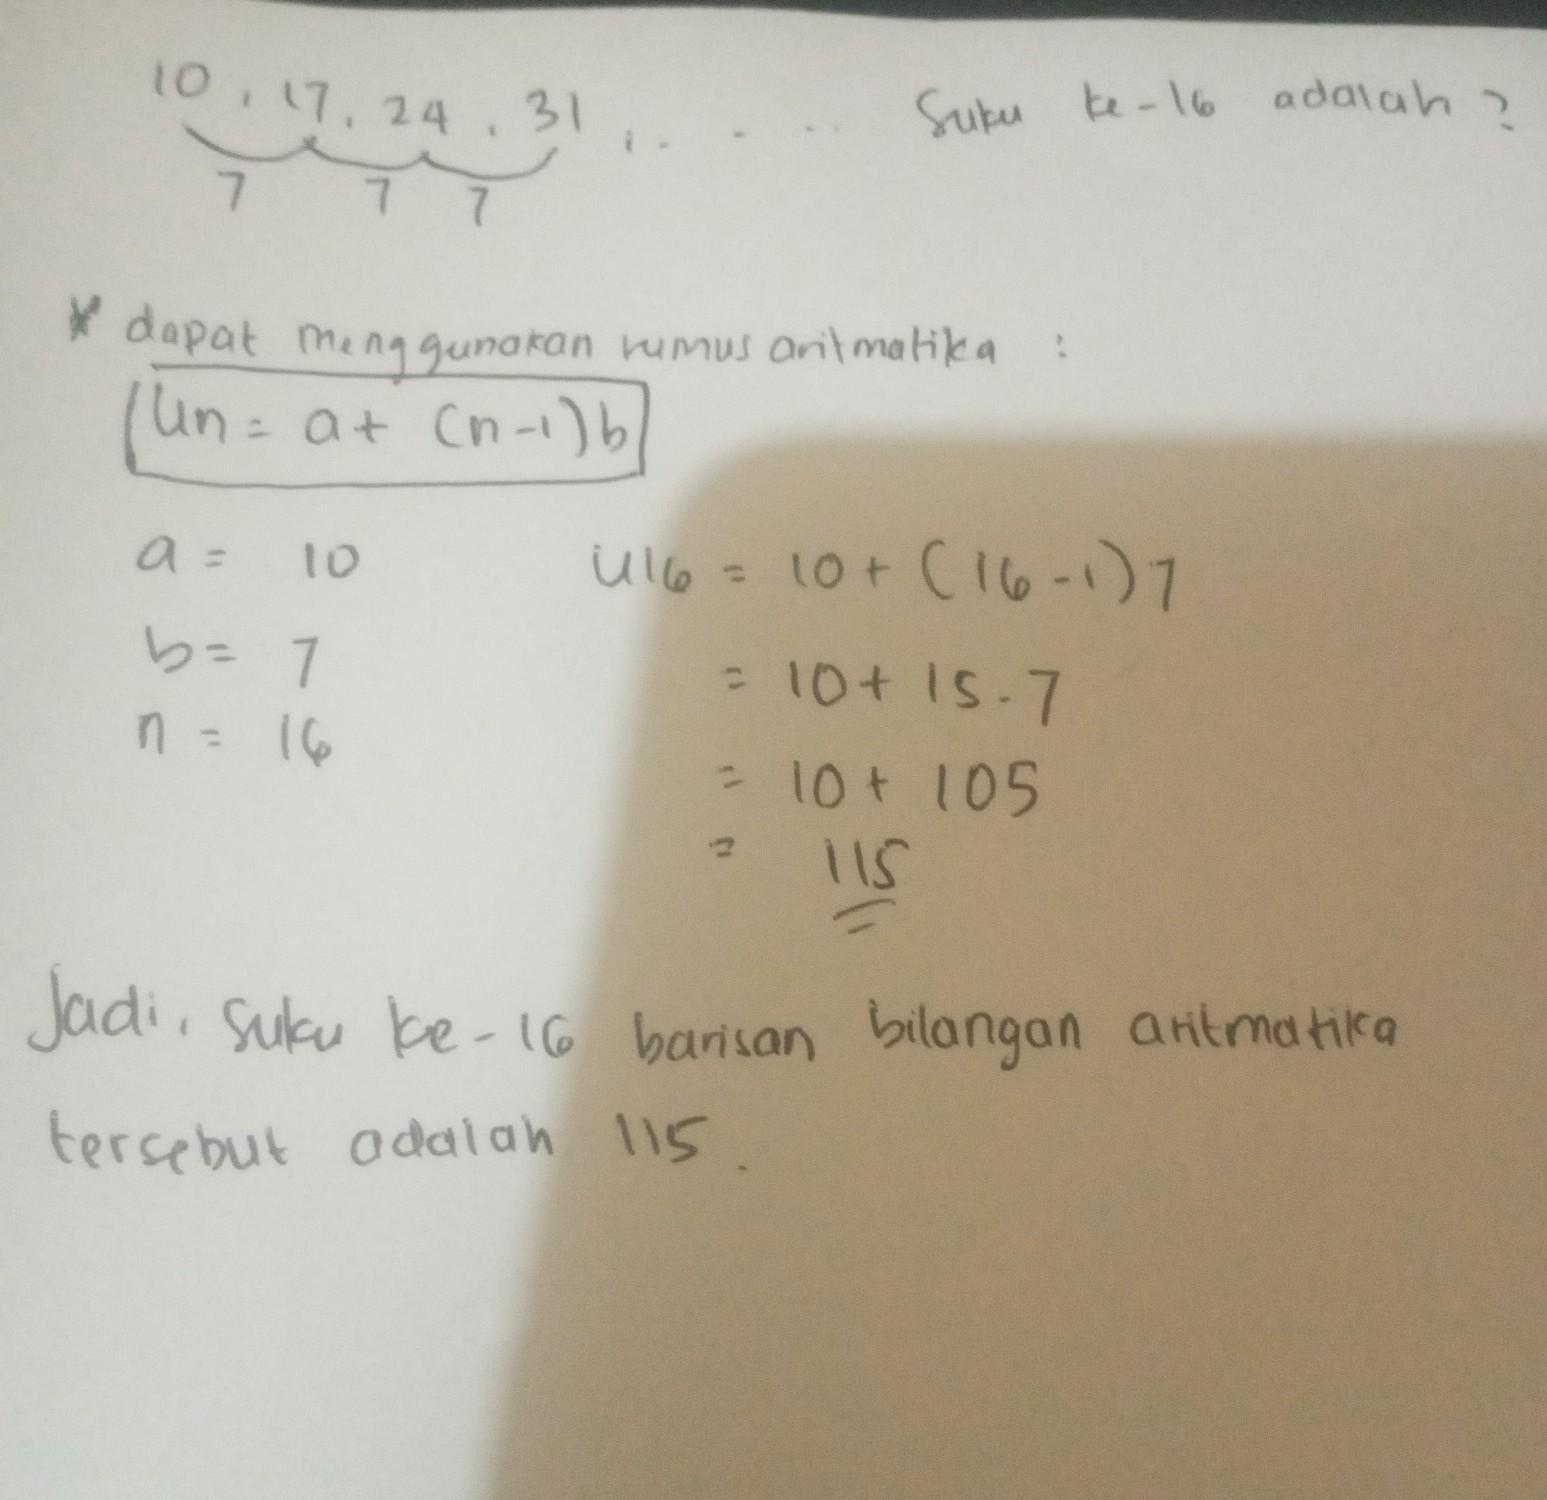 10, 17, 24, 31, . . . . Suku ke-16 adalah?
7 7 7
* dapat menggunakan rumus aritmatika :
Un = a + (n-1)b
a = 10 U16 = 10 + (16-1)7
b = 7 = 10 + 15.7
n = 16 = 10 + 105
= 115
Jadi, suku ke-16 barisan bilangan aritmatika
tersebut adalah 115.